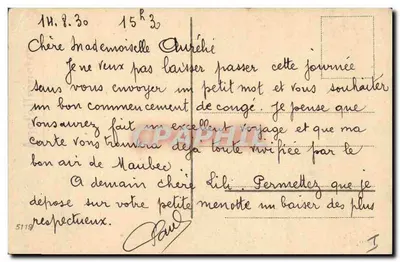 14.8.30 15h30
Chère Mademoiselle Aurélie
Je ne veux pas laisser passer cette journée
sans vous envoyer un petit mot et vous souhaiter
un bon commencement de congé. Je pense que
vous aurez fait un excellent voyage et que ma
carte vous trouvera déjà toute vivifiée par le
bon air de Maubec.
A demain chère Lili. Permettez que je
dépose sur votre petite menotte un baiser des plus
respectueux.
Paul
CPAPHIL
I